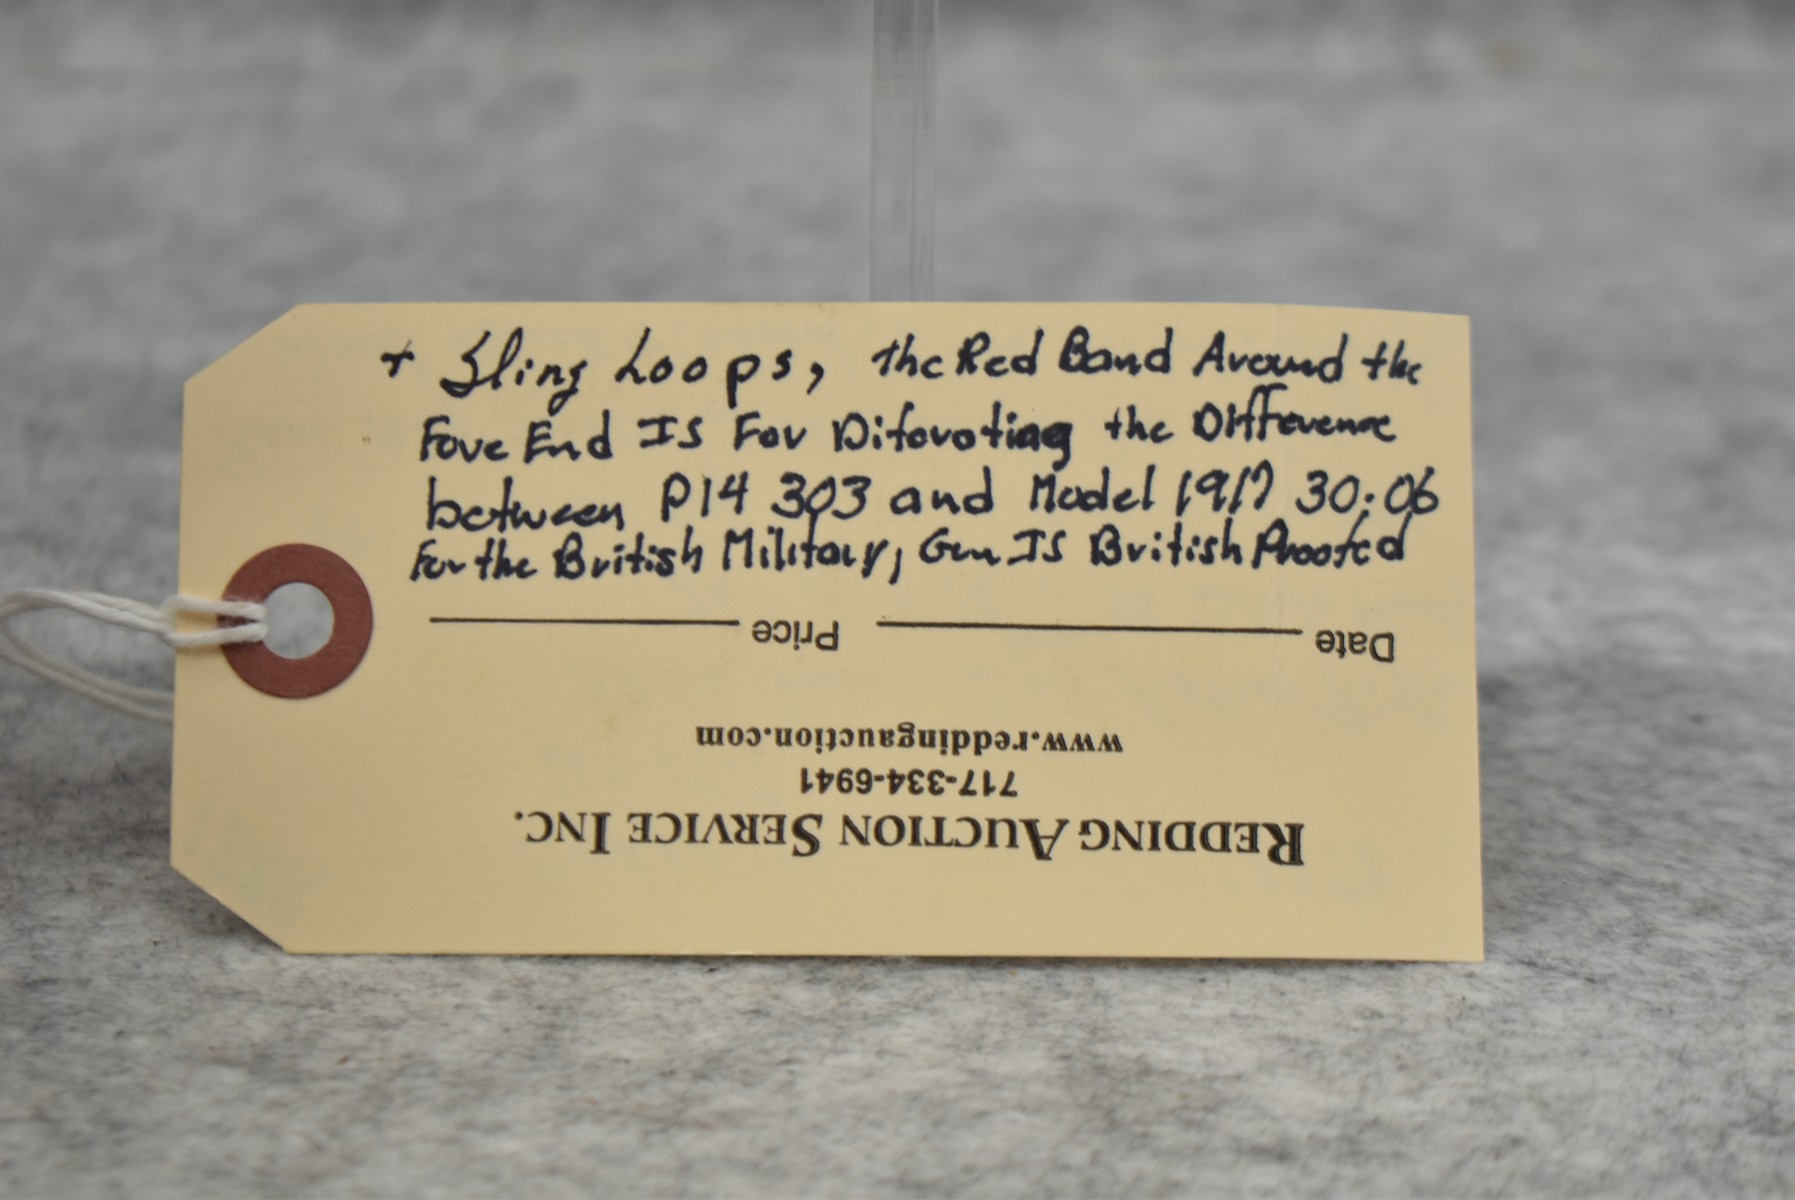 + Sling Loops, the Red Band Around the
Fore End Is For Diforoting the Difference
between P14 303 and Model 1917 30:06
For the British Military, Gun IS British Proofed
Date Price
www.reddingauction.com
717-334-6941
REDDING AUCTION SERVICE INC.